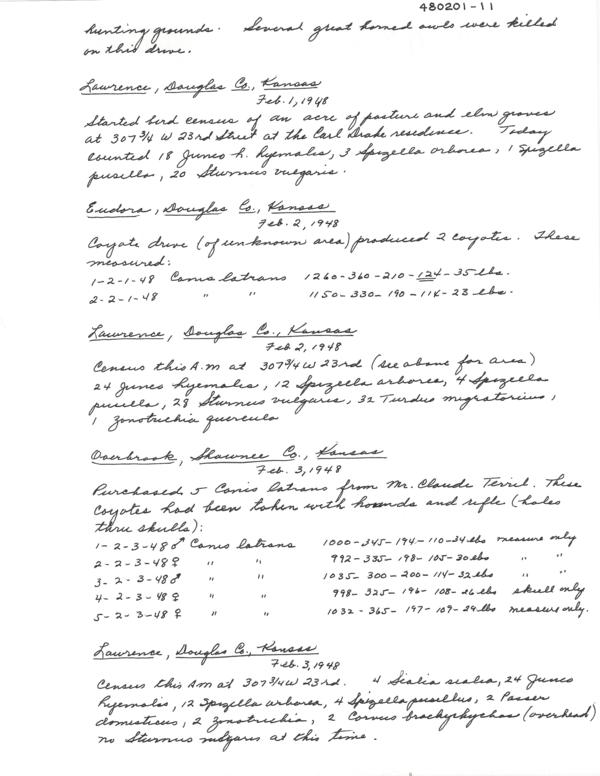 480201-11
hunting grounds. Several great horned owls were killed
on this drive.
Lawrence, Douglas Co., Kansas
Feb. 1, 1948
Started bird census of an acre of pasture and elm groves
at 307 3/4 W 23rd Street at the Carl Drake residence. Today
counted 18 Junco h. hyemalis, 3 Spizella arborea, 1 Spizella
pusilla, 20 Sturnus vulgaris.
Eudora, Douglas Co., Kansas
Feb. 2, 1948
Coyote drive (of unknown area) produced 2 coyotes. These
measured:
1-2-1-48 Canis latrans 1260-360-210-124-35 lbs.
2-2-1-48 " " 1150-330-190-114-23 lbs.
Lawrence, Douglas Co., Kansas
Feb 2, 1948
Census this A.M at 307 3/4 W 23rd (see above for area)
24 Junco hyemalis, 12 Spizella arborea, 4 Spizella
pusilla, 28 Sturnus vulgaris, 32 Turdus migratorius,
1 Zonotrichia querula
Overbrook, Shawnee Co., Kansas
Feb. 3, 1948
Purchased 5 Canis latrans from Mr. Claude Terril. These
coyotes had been taken with hounds and rifle (holes
thru skulls):
1-2-3-48 ♂ Canis latrans 1000-345-194-110-34 lbs measure only
2-2-3-48 ♀ " " 992-335-198-105-30 lbs " "
3-2-3-48 ♂ " " 1035-300-200-114-32 lbs " "
4-2-3-48 ♀ " " 998-325-196-108-26 lbs skull only
5-2-3-48 ♀ " " 1032-365-197-109-29 lbs measure only.
Lawrence, Douglas Co., Kansas
Feb. 3, 1948
Census this Am at 307 3/4 W 23rd. 4 Sialia sialia, 24 Junco
hyemalis, 12 Spizella arborea, 4 Spizella pusillus, 2 Passer
domesticus, 2 Zonotrichia, 2 Corvus brachyhychos (overhead)
no Sturnus vulgaris at this time.